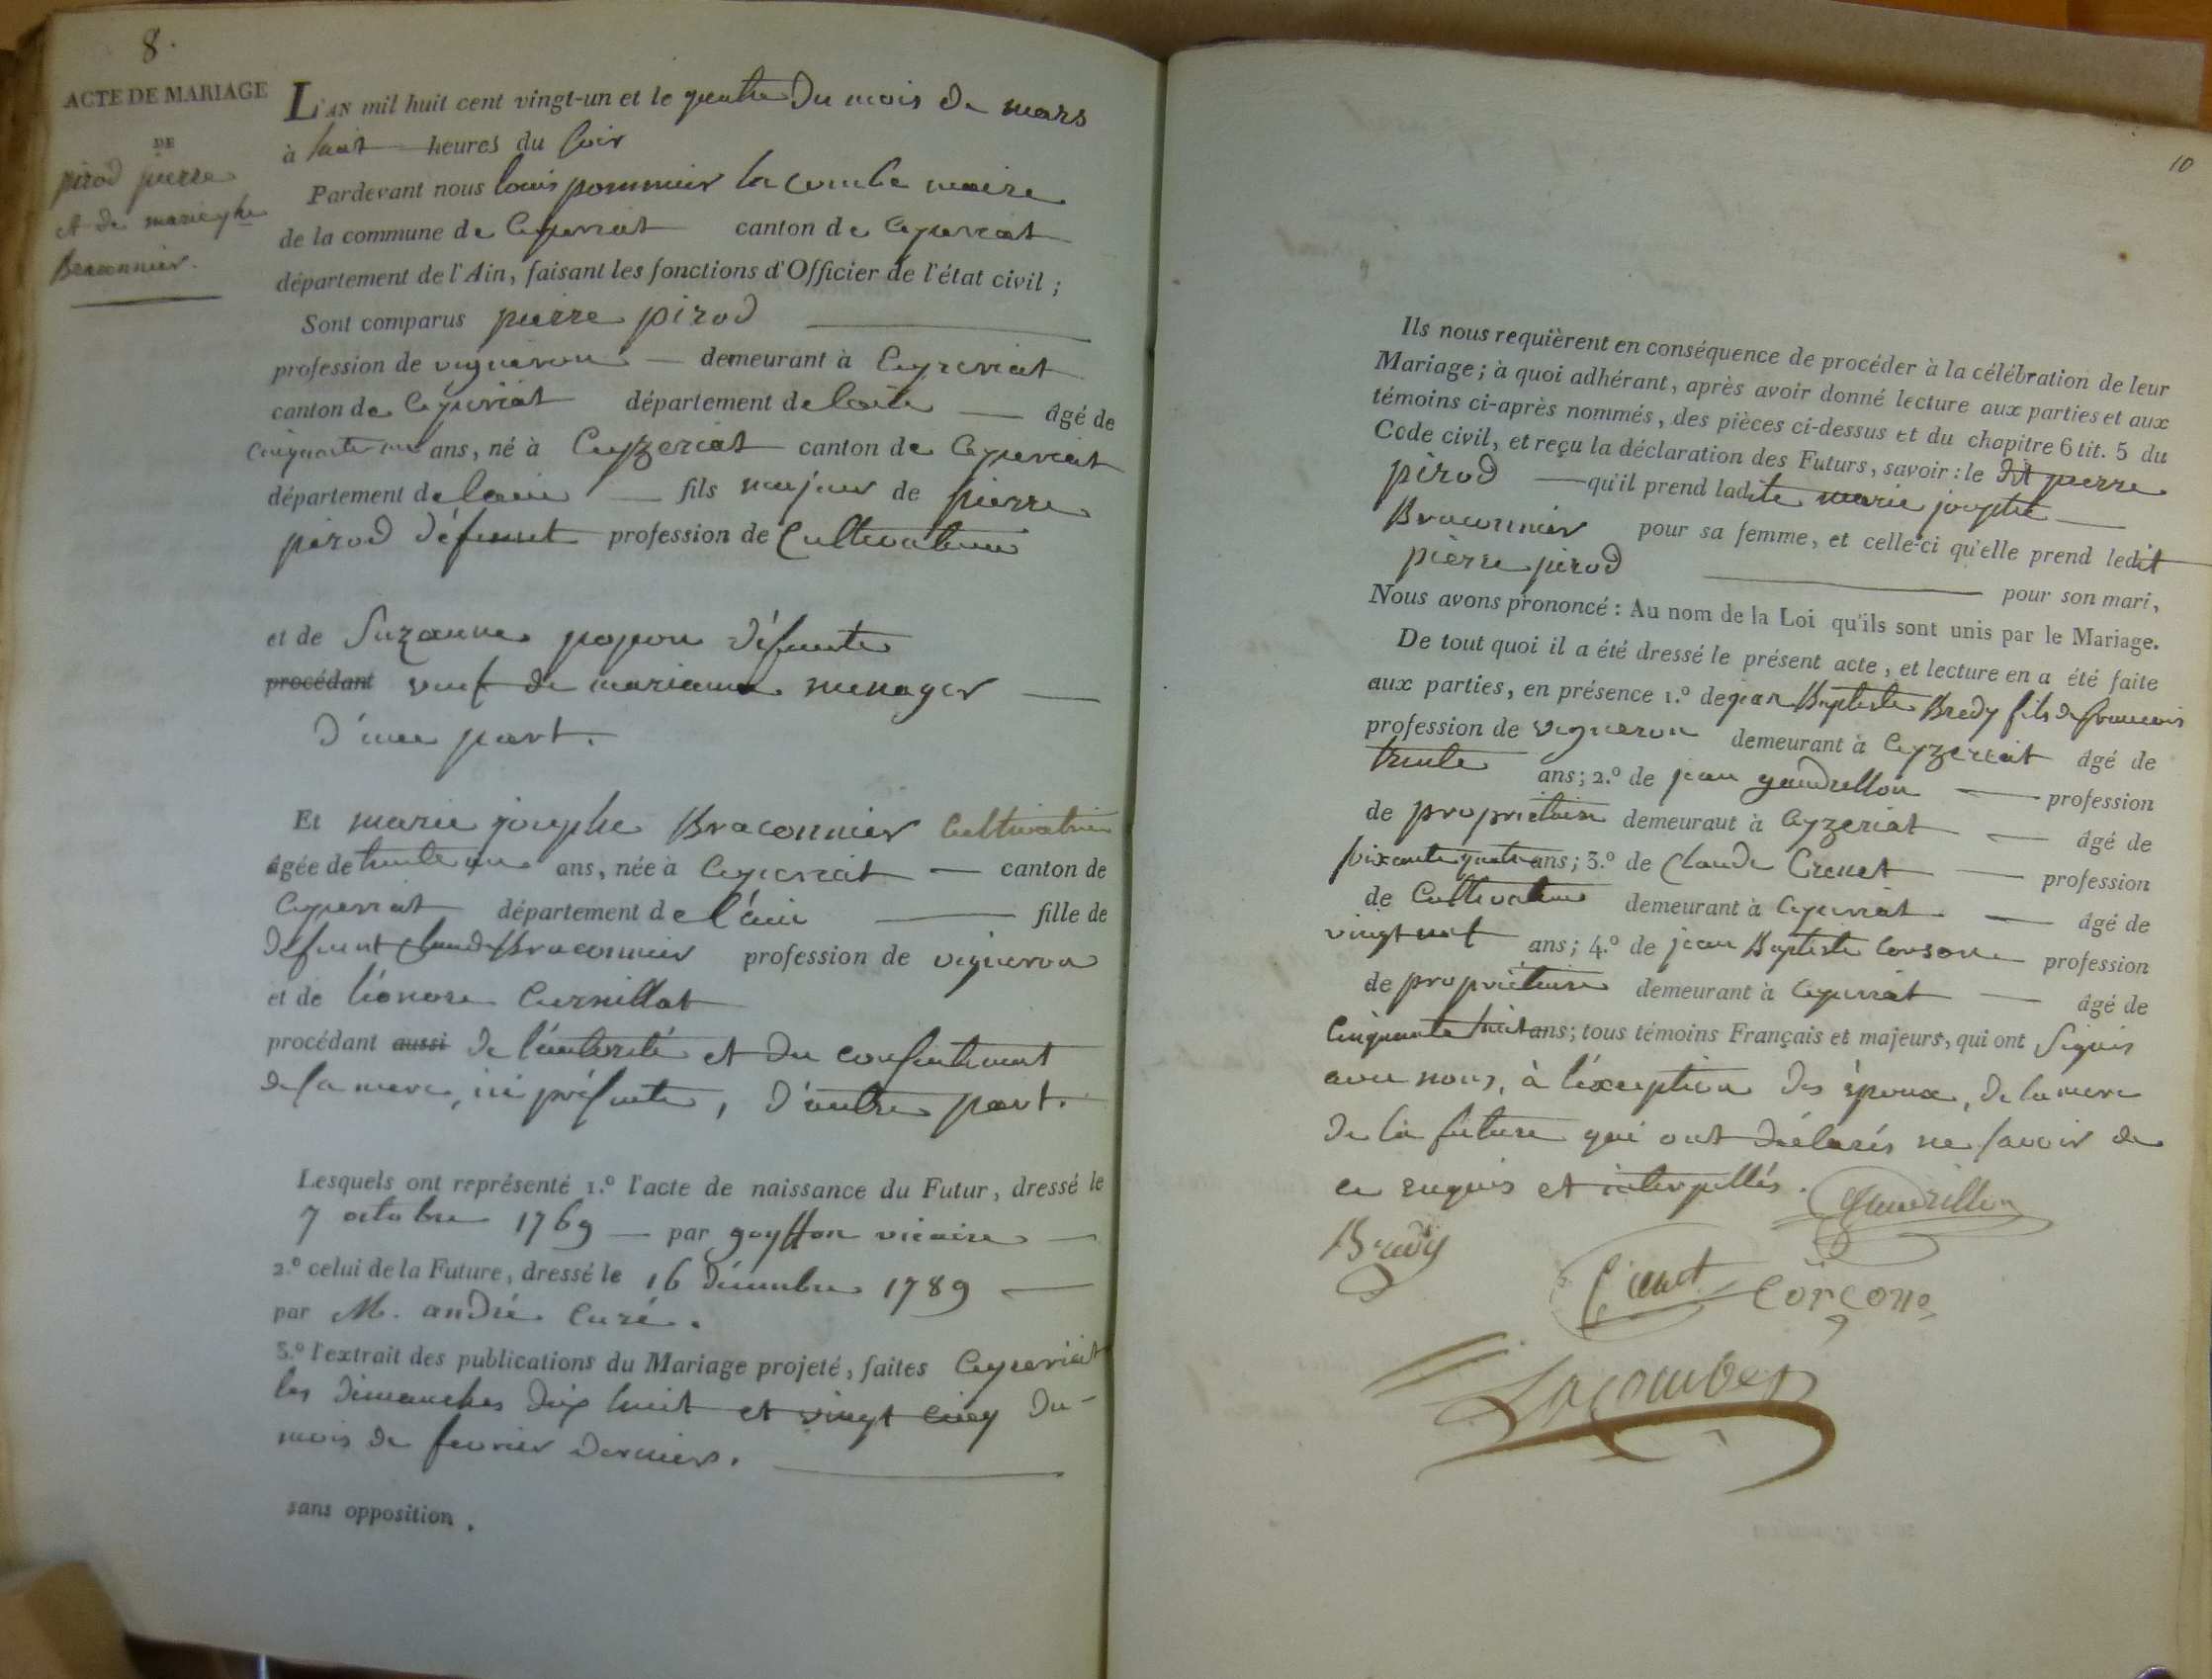 8.
ACTE DE MARIAGE
DE
pirod pierre
et de marie jphe
Braconnier.
L'AN mil huit cent vingt-un et le quatre du mois de mars
à huit heures du soir
Pardevant nous louis pommier lacombe maire
de la commune de Ceyzeriat canton de Ceyzeriat
département de l'Ain, faisant les fonctions d'Officier de l'état civil ;
Sont comparus pierre pirod
profession de vigneron — demeurant à Ceyzeriat
canton de Ceyzeriat département de lain — âgé de
cinquante un ans, né à Ceyzeriat canton de Ceyzeriat
département de lain — fils majeur de pierre
pirod défunt profession de Cultivateur
et de Suzanne popon défunte
procédant veuf de marianne menager —
d'une part.
Et marie josephe Braconnier Cultivatrice
âgée de trente un ans, née à Ceyzeriat — canton de
Ceyzeriat département de l'ain — fille de
défunt Claude Braconnier profession de vigneron
et de léonore Curnillat
procédant aussi de l'autorité et du consentiment
de sa mere, ici présente, d'autre part.
Lesquels ont représenté 1.º l'acte de naissance du Futur, dressé le
7 octobre 1769 — par goyffon vicaire —
2.º celui de la Future, dressé le 16 décembre 1789 —
par M. andré Curé.
3.º l'extrait des publications du Mariage projeté, faites Ceyzeriat
les dimanches dix huit et vingt cinq du
mois de fevrier dernier.
sans opposition.
10
Ils nous requièrent en conséquence de procéder à la célébration de leur
Mariage ; à quoi adhérant, après avoir donné lecture aux parties et aux
témoins ci-après nommés, des pièces ci-dessus et du chapitre 6 tit. 5 du
Code civil, et reçu la déclaration des Futurs, savoir : le dit pierre
pirod — qu'il prend ladite marie josephe —
Braconnier pour sa femme, et celle-ci qu'elle prend ledit
pierre pirod — pour son mari,
Nous avons prononcé : Au nom de la Loi qu'ils sont unis par le Mariage.
De tout quoi il a été dressé le présent acte, et lecture en a été faite
aux parties, en présence 1.º de jean Baptiste Bredy fils de francois
profession de vigneron demeurant à Ceyzeriat âgé de
trente ans ; 2.º de jean gaudrillon — profession
de propriétaire demeuraut à Ceyzeriat — âgé de
soixante quatre ans ; 3.º de Claude Crenet — profession
de Cultivateur demeurant à Ceyzeriat — âgé de
vingt neuf ans ; 4.º de jean Baptiste Corsone profession
de propriétaire demeurant à Ceyzeriat — âgé de
Cinquante huit ans ; tous témoins Français et majeurs, qui ont Signés
avec nous, à l'éxception des époux, de la mere
de la future qui ont déclarés ne savoir de
ce enquis et interpellés.
Bredy
Corcone
Lacombe